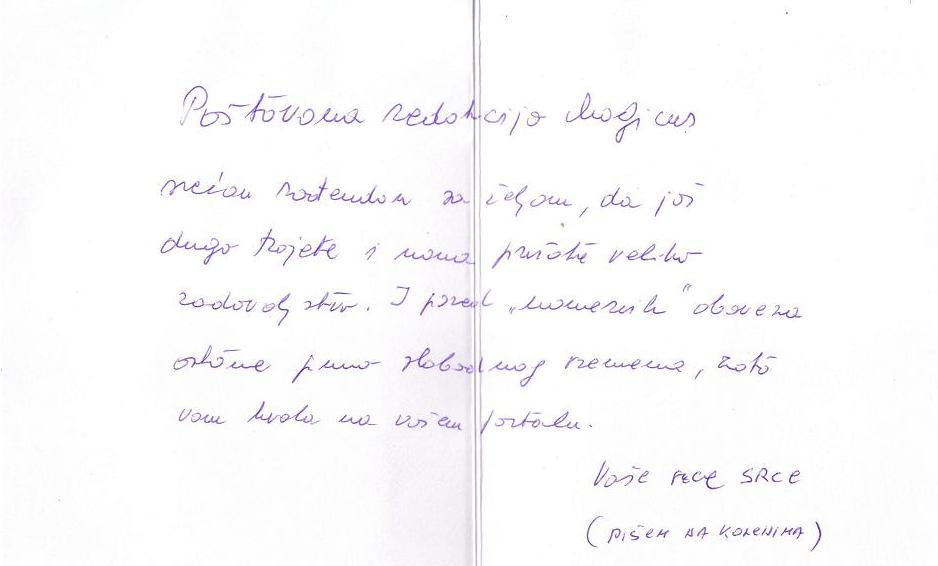 Poštovana redakcijo Magicus
srećan rođendan sa željom, da još
dugo trajete i nama pričate veliko
zadovoljstvo. I pored „nameznih“ obaveza
ostane puno slobodnog vremena, zato
vam hvala na vašem portalu.
Vaše SRCE
(PIŠEM NA KOLENIMA)